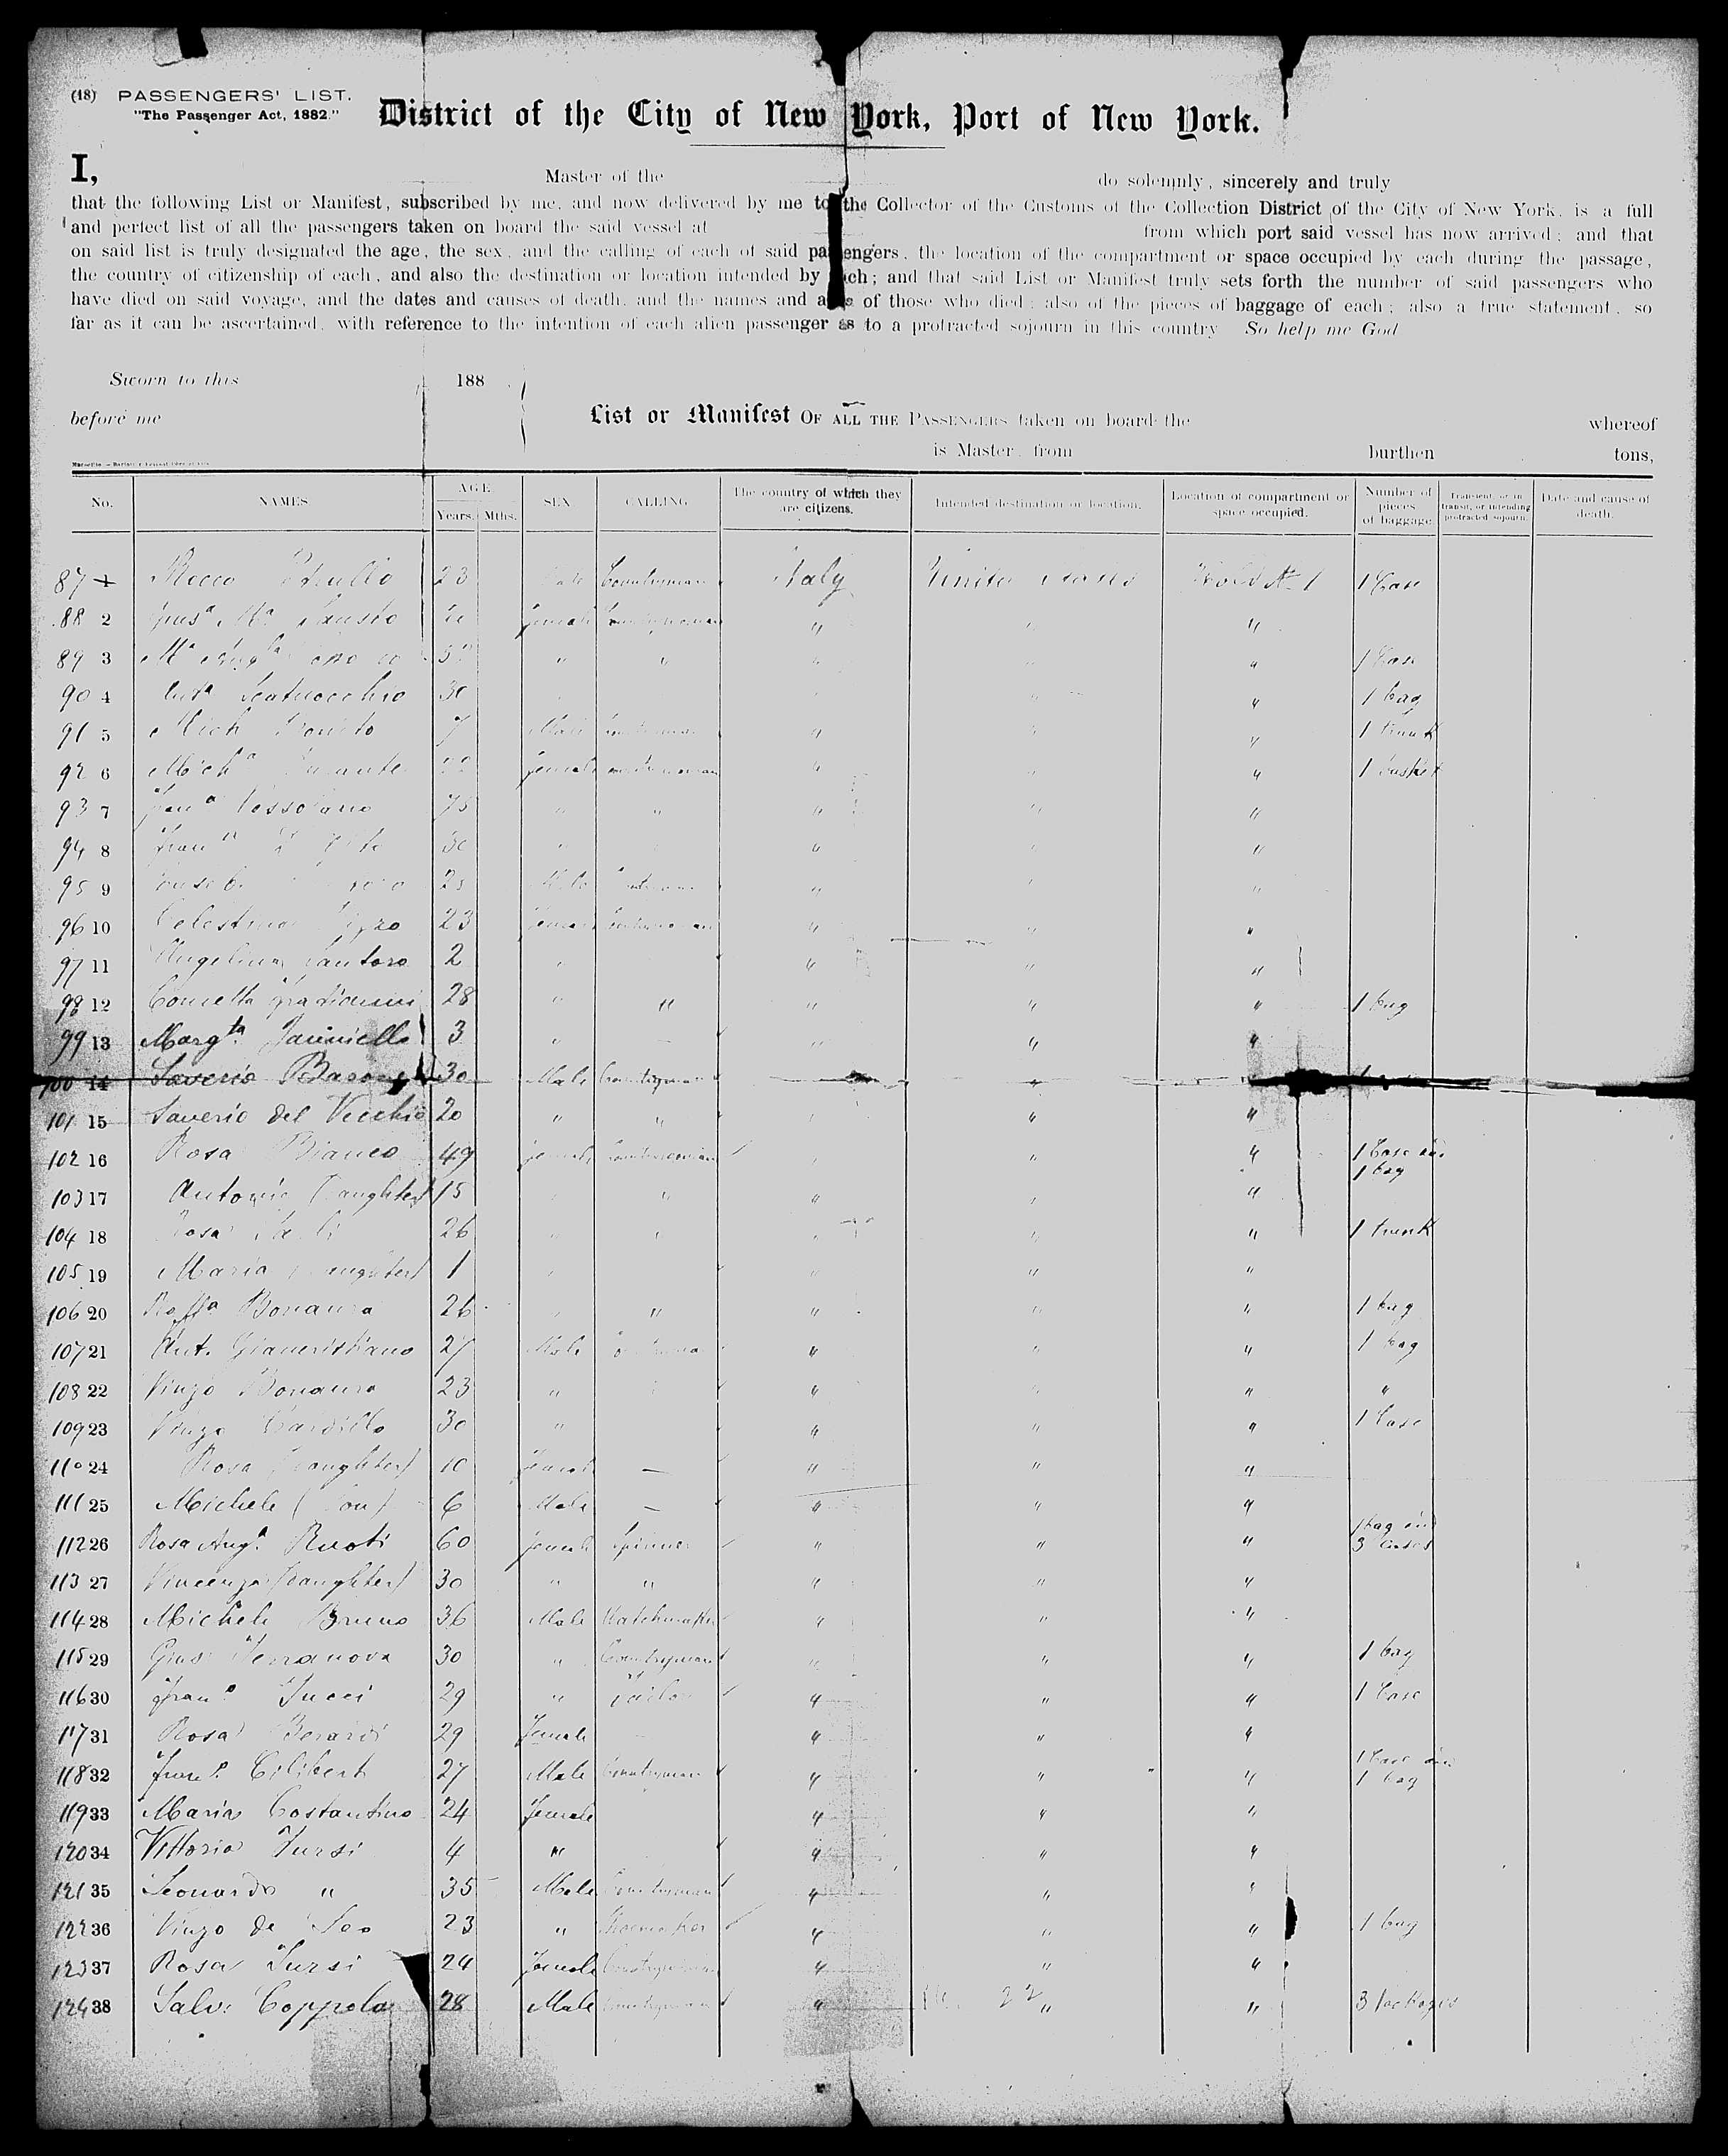 (18) PASSENGERS' LIST.
"The Passenger Act, 1882."
District of the City of New York, Port of New York.
I, Master of the do solemnly, sincerely and truly
that the following List or Manifest, subscribed by me, and now delivered by me to the Collector of the Customs of the Collection District of the City of New York, is a full
and perfect list of all the passengers taken on board the said vessel at from which port said vessel has now arrived; and that
on said list is truly designated the age, the sex, and the calling of each of said passengers, the location of the compartment or space occupied by each during the passage,
the country of citizenship of each, and also the destination or location intended by each; and that said List or Manifest truly sets forth the number of said passengers who
have died on said voyage, and the dates and causes of death, and the names and ages of those who died; also of the pieces of baggage of each; also a true statement, so
far as it can be ascertained, with reference to the intention of each alien passenger as to a protracted sojourn in this country So help me God
Sworn to this 188
before me
List or Manifest OF ALL THE PASSENGERS taken on board the whereof
is Master, from burthen tons,
No. NAMES AGE Years. Mths. SEX CALLING The country of which they are citizens. Intended destination or location. Location of compartment or space occupied. Number of pieces of baggage Transient, or in transit, or intending protracted sojourn. Date and cause of death.
87 1 Rocco 23 Male Countryman Italy United States Hold No 1 1 Case
88 2 Female Countrywoman " " "
89 3 " " " " " 1 Case
90 4 30 " " 1 bag
91 5 Mich 7 Male " " " 1 trunk
92 6 Mich.a Female Countrywoman " " " 1 basket
93 7 75 " " " " "
94 8 Fran.a 30 " " " "
95 9 Male " " "
96 10 Celestina 23 Female Countrywoman " " "
97 11 Angelina Santoro 2 " " " "
98 12 Concetta 28 " " " " " 1 bag
99 13 Marg.ta Janniello 3 " " " "
100 14 Saverio Barone 30 Male Countryman "
101 15 Saverio del Vecchio 20 " " " "
102 16 Rosa Bianco 49 Female Countrywoman " " 1 Case and 1 bag
103 17 Antonia (Daughter) 15 " " " "
104 18 Rosa 26 " " " " " 1 trunk
105 19 Maria (Daughter) 1 " " " "
106 20 Raff.a Bonaura 26 " " " " " 1 bag
107 21 Ant. Giancristiano 27 Male " " " 1 bag
108 22 Vinzo Bonaura 23 " " " " "
109 23 Vinzo Cardillo 30 " " " " 1 Case
110 24 Rosa (Daughter) 10 Female — " " "
111 25 Michele (Son) 6 Male — " " "
112 26 Rosa Ang.a Ruoti 60 Female Spinner " " " 1 bag and 3 cases
113 27 Vincenza (Daughter) 30 " " " " "
114 28 Michele Bruno 36 Male Watchmaker " "
115 29 Gius. Terranova 30 " Countryman " " " 1 bag
116 30 Fran.o Tucci 29 " Tailor " " " 1 Case
117 31 Rosa Berardi 29 Female " " "
118 32 Fran.o Ciliberti 27 Male Countryman " " " 1 Case and 1 bag
119 33 Maria Costantino 24 Female " " "
120 34 Vittoria Tursi 4 " " " "
121 35 Leonardo " 35 Male Countryman " " "
122 36 Vinzo de Leo 23 " Shoemaker " " " 1 bag
123 37 Rosa Tursi 24 Female Countrywoman " " "
124 38 Salv. Coppola 28 Male Countryman " 22 " " 3 Packages